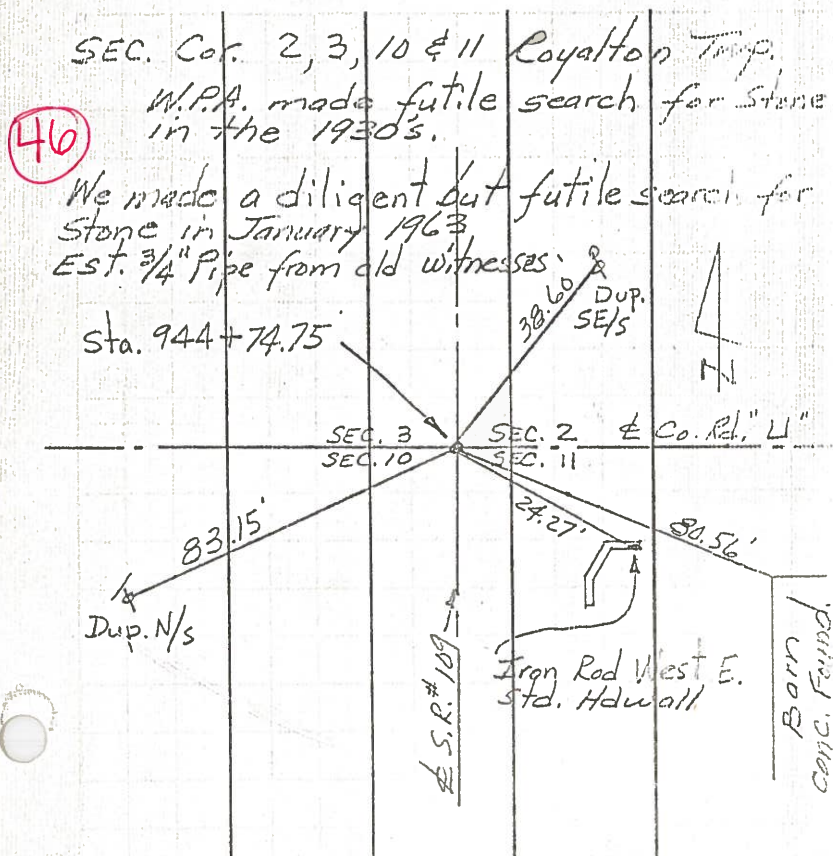 SEC. Cor. 2, 3, 10 & 11 Royalton Twp.
W.P.A. made futile search for Stone
in the 1930's.
46
We made a diligent but futile search for
Stone in January 1963
Est. 3/4" Pipe from old witnesses
38.60'
Dup.
SE/s
Sta. 944+74.75
N
SEC. 3 SEC. 2 ℄ Co. Rd. "U"
SEC. 10 SEC. 11
83.15'
24.27'
80.56'
Dup. N/s
℄ S.R.# 109
Iron Rod West E.
Std. Hdwall
Barn
Conc. Found.